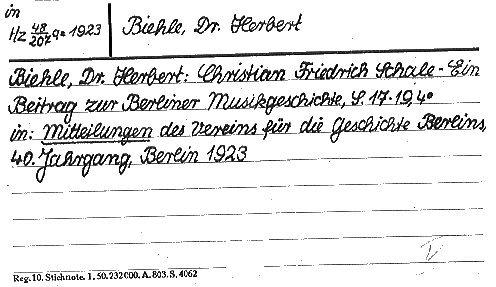 in
Hz 48/207 q° 1923
Biehle, Dr. Herbert
Biehle, Dr. Herbert: Christian Friedrich Schale - Ein
Beitrag zur Berliner Musikgeschichte, S. 17-19, 4°
in: Mitteilungen des Vereins für die Geschichte Berlins,
40. Jahrgang, Berlin 1923
Reg. 10. Stichnote. 1. 50. 232000. A. 803. S. 4062